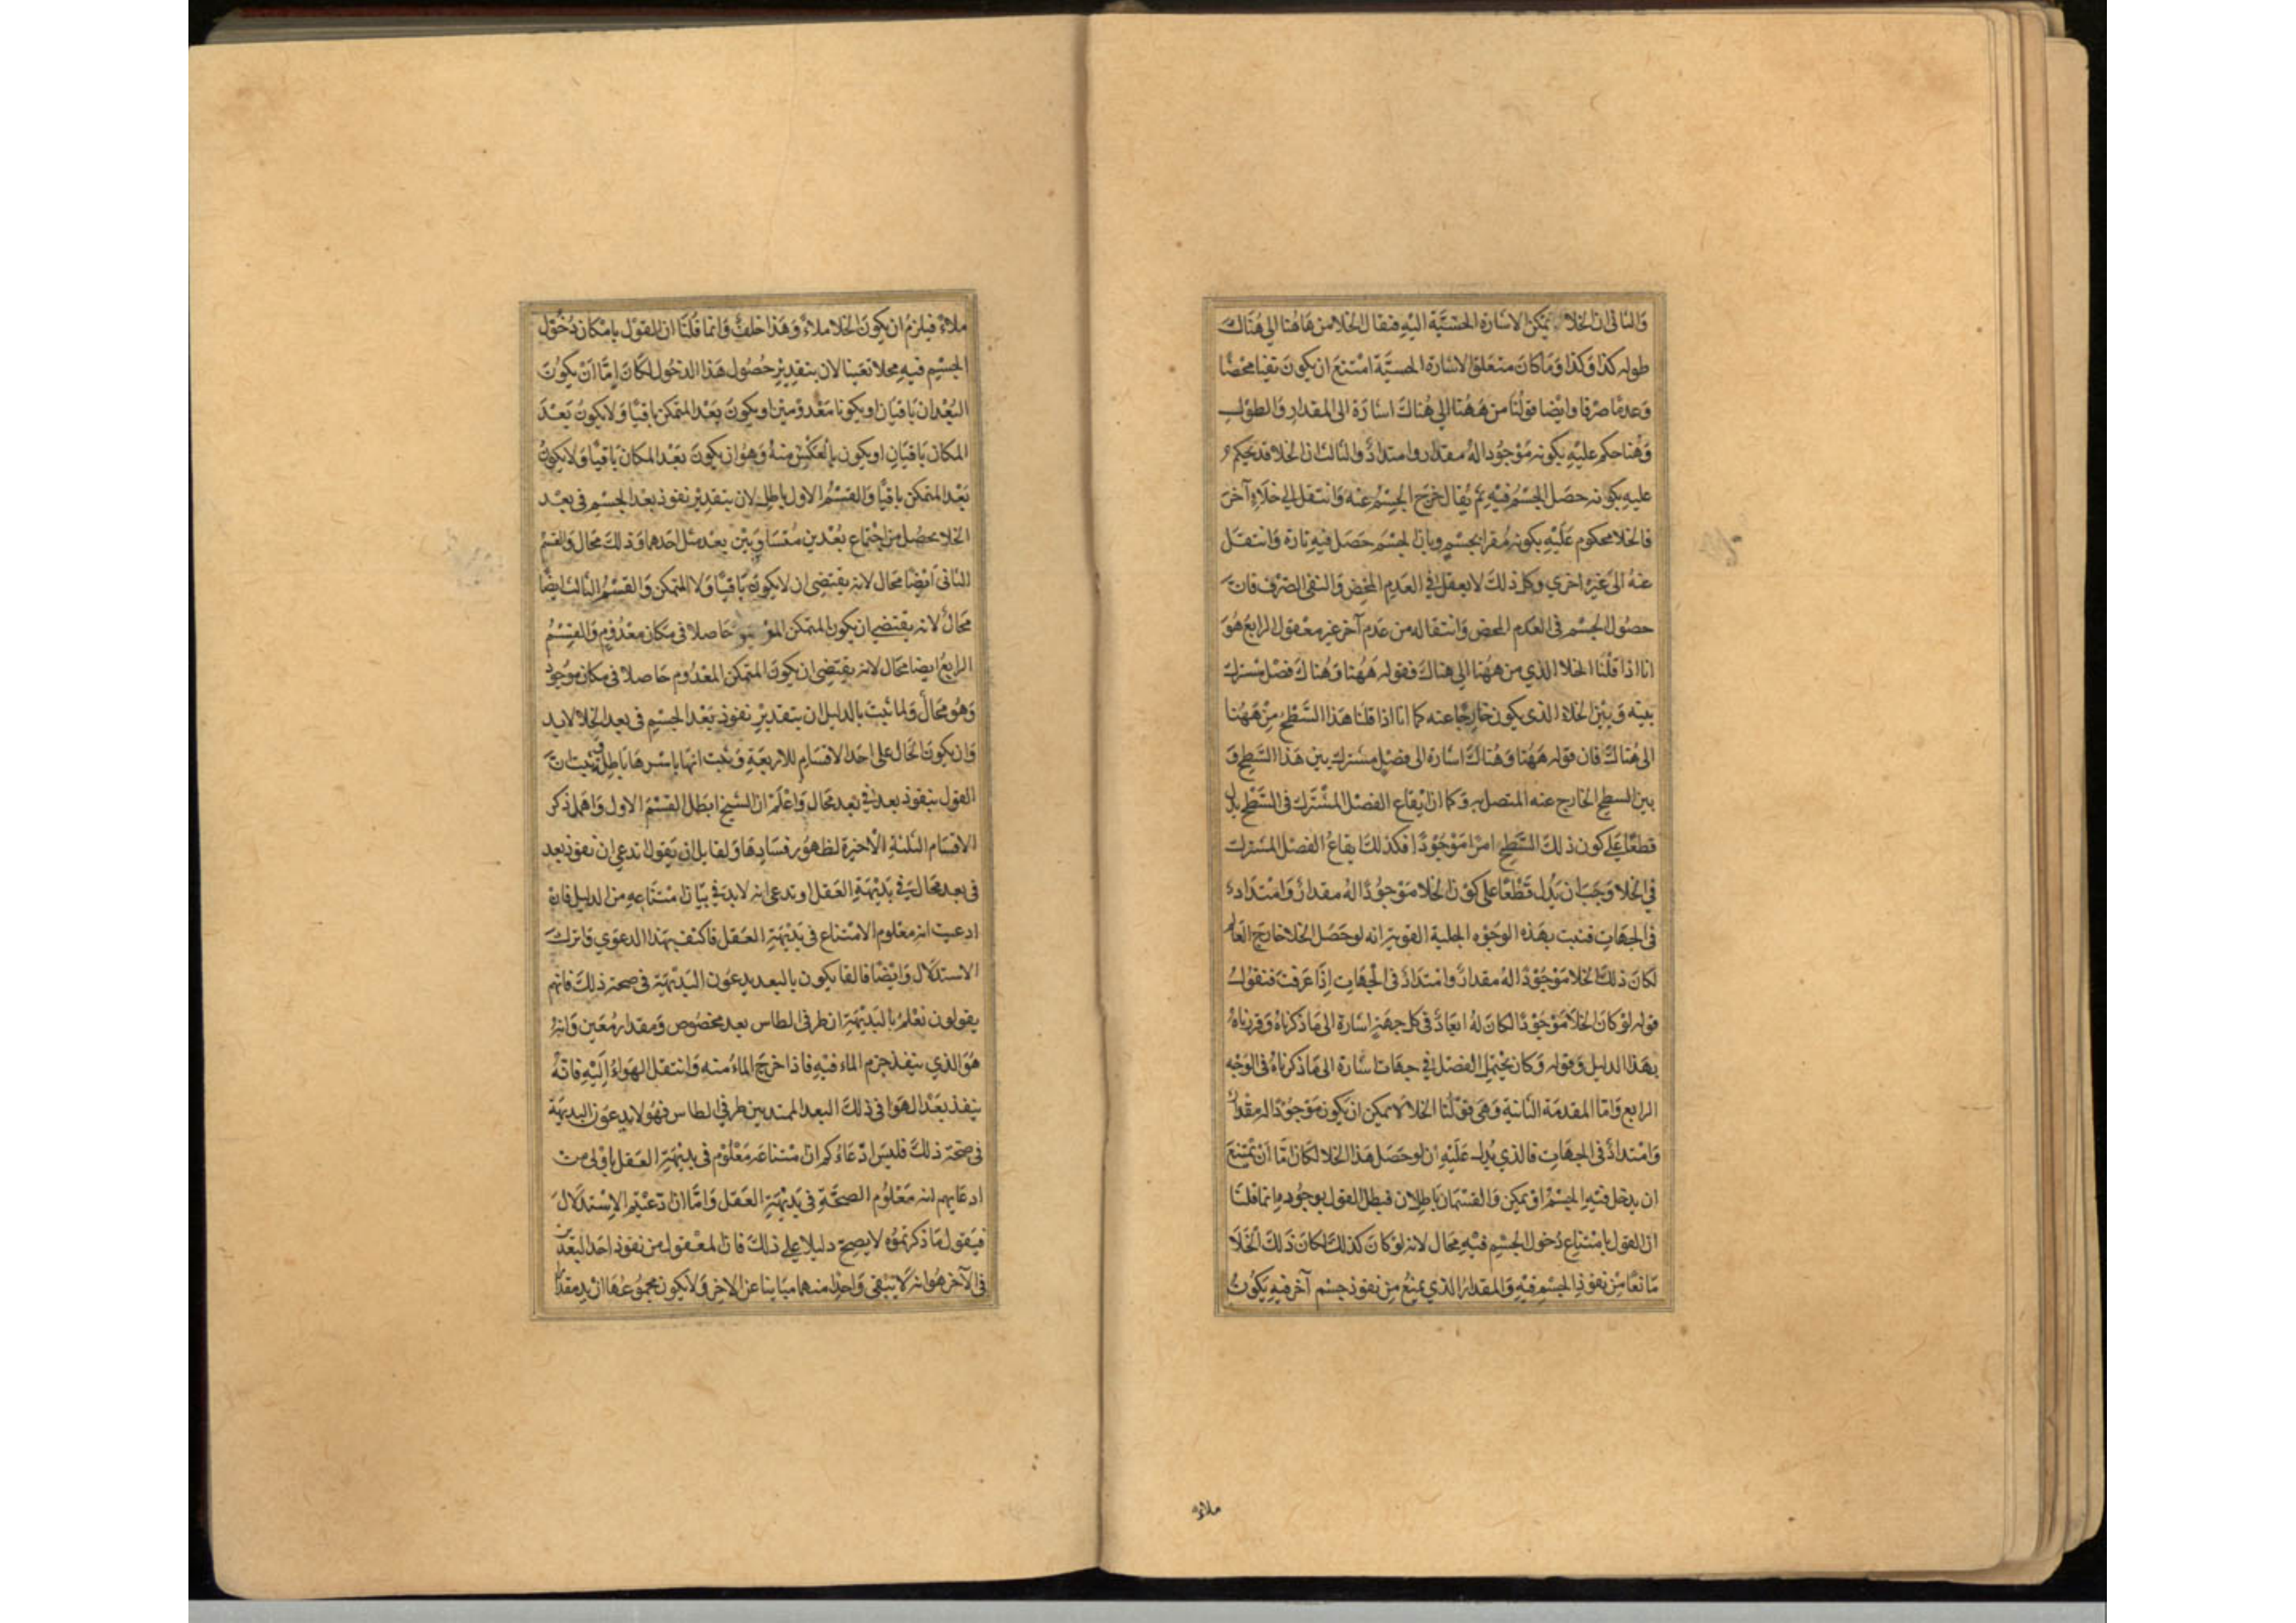 والثاني ان الخلا يمكن الاشارة الحسّيّة اليه فيقال الخلا من هاهنا الي هُنَاك
طوله كذا وكذا وَمَا كانَ متعلق الاشارة الحسيّة امْتنعَ ان يكونَ نفيا محْضًا
وَعدمًا صرْفا وايْضا قولُنا من هَهُنا الي هُنَاكَ اشارَة الى المقدار وَالطول
وَهُنا حكم عليْهِ بكونه مَوْجُودا لهُ مقدار وامتدادٌ والثالث ان الخلا قد يحكم
عليه بكونه حصَل الجسْمُ فيْهِ ثم يُقال خرَج الجسْمُ عنه وَانتقل الي خلَاءٍ آخرَ
فالخلا محكوم عَلَيْهِ بكونه مقرا لجسْمٍ وبان الجسْم حَصَل فيهِ تارة وَانتقل
عنهُ الى غيْره اخري وكل ذلكَ لا يعقل في العدم المحْض وَالنفى الصرْف فانّ
حصُول الجسْم فى العَدم المحض وَانتقاله من عَدم آخر غير معْقول الرابعُ هُوَ
انا اذا قلْنَا الخلا الذي من ههُنا الي هناكَ فقوله هَهُنا وَهُناكَ فصْل مشترك
بينه وَبيْن الخلاء الذى يكون خارجًا عنه كما انا اذا قلنا هَذا السَّطْحُ مِنْ هَهُنا
الى هُناكَ فان قوله هَهُنا وَهُناكَ اشارة الى فصْلٍ مشترك بين هَذا السَّطح وَ
بين السطح الخارج عنه المتصل به وَكما ان ايْقاع الفصْل المشْترَك فى السَّطْح يدل
قطعًا علي كون ذلكَ السَّطح امرًا مَوْجُودًا فكذلكَ ايقاعُ الفصْل المشترك
في الخلا وَجَبَ ان يَدُلّ قطْعًا على كوْن الخلا مَوْجُودًا لهُ مقدارٌ وَامْتدَاد
فى الجهَات فثبت بهَذه الوجُوه الجلية القويّة انه لو حصَل الخلا خارجَ العَالم
لكانَ ذلكَ الخلا مَوْجُوْدًا لهُ مقدارٌ وامْتدادٌ فى الجهَات اذَا عَرفتَ فنقولُ
قوله لوْ كانَ الخلا مَوْجُوْدًا لكانَ لهُ ابعَادٌ فى كل جهَةٍ اشارة الى مَا ذكرناهُ وَقررناهُ
بهَذا الدليل وَقوله وَكان يحْتمل الفصْل في جهَات اشارة الى مَا ذكرناهُ فى الوَجْه
الرابع وَامّا المقدمَة الثانية وَهى قوْلنا الخلا لا يمكن ان يكون مَوْجُوْدًا له مقْدار
وَامْتدادٌ فى الجهَات فالذي يدل عَليْهِ انه لو حَصَل هَذا الخلا لكان امّا انْ يمْتنعَ
ان يدخل فيْهِ الجسْمُ اوْ يمكن وَالقسْمَان بَاطلان فبطل القول بوجُوده وانما قلنَا
ان القول بامْتناع دُخول الجسْم فيْهِ مُحَال لانه لوْ كانَ كذلكَ لكانَ ذلكَ الخلَا
مَانعًا مِنْ نفوذ الجسْم فيْهِ وَالمقدارُ الذي يمنعُ مِنْ نفوذ جسْم آخر فيهِ يكونُ
ملاءً
ملاءً فيلزمُ ان يكونَ الخلا ملاءً وَهَذا خلفٌ وَانما قُلْنَا ان القوْل بامْكان دُخول
الجسْم فيهِ محلا نفينا لان بتقديْر حُصُول هَذا الدخُول لكانَ امَّا انْ يكونَ
البُعْدان باقيَان او يكونا مَعْدومَيْن او يكونَ بَعْد المتمكن باقيًا وَلا يكونُ بَعْدَ
المكان بَاقيَان او يكون بالعَكْسْ منهُ وَهُوَ ان يكونَ بَعْد المكان بَاقيًا وَلا يكونُ
بَعْد المتمكن باقيًا وَالقسْمُ الاول باطل لان بتقديْر نفوذ بعد الجسْم فى بعد
الخلا يحصُل من اجْتماع بعْدين مُتسَاويَيْن بعْد مثل احَدهما وَذلكَ مَحال وَالقسْم
الثانى أيْضًا محَال لانه يقتضى ان لا يكون بَاقيًا وَلا المتمكن وَالقسْمُ الثالث ايضًا
محَالٌ لانه يقتضي ان يكون المتمكن الموْجود حَاصلا فى مكان معْدُوم وَالقِسْمُ
الرابعُ ايضا محَال لانه يقتضى ان يكون المتمكن المعْدُوم حَاصلا فى مكان موجُود
وَهُوَ محَالٌ وَلما ثبتَ بالدليل ان بتقديْر نفوذ بَعْد الجسْم فى بعد الخلا لا بد
وَان يكونَ الحَال على احَد الاقسَام الاربعَةِ وَثبت انهَا باسْرهَا بَاطِلة ثبت انّ
القول بنفوذ بعد في بَعد محَال وَاعْلَمْ ان الشيخ ابطل القسْمَ الاول وَاهمل ذكر
الاقسَام الثلثة الأخيرة لظهوُر فسَادهَا وَلقايل ان يَقول تدعي ان نفوذ بعد
فى بعد محَال في بَديْهَة العَقل او تدعى انه لا بد في بيَان امْتنَاعِهِ من الدليل فان
ادعيت انه معْلوم الامْتناع فى بَديْهَة العَقل فاكتف بهَذا الدعوي وَاترك
الاستدلَال وَايْضًا فالقايلون بالبعد يدعُون البَديْهَيّة فى صحة ذلكَ فانهم
يقولون نعْلمُ بالبَديْهَة ان طرفى الطاس بعد مخصُوص وَمقدار مُعَين وَانهُ
هُوَ الذي ينفذ جرم الماء فيْهِ فاذا خرجَ الماءُ منه وَانتقل الهَواءُ اليْهِ فانهُ
ينفذ بَعْد الهَوا فى ذلكَ البعد الممتد بين طرفي الطاس فهُوَلا يدعوَن البديهَة
فى صحّة ذلكَ فليسَ ادّعَاءُكم ان امْتناعَه مَعْلُوْم فى بديْهَة العَقل باوْلى من
ادعَايهم انه مَعْلُوم الصحَّةِ فى بَديْهَة العَقل وَامَّا ان ادّعَيْتم الإسْتدْلَالَ
فيَقول مَا ذكرتمُوه لا يصحّ دليلا علي ذلكَ فان المعْقول من نفوذ احَد البُعْدين
فى الآخر هُوَ انه لَا يَبْقى وَاحدٌ منهما مبَاينا عن الاخر وَلا يكون مجمُوعُهَا ازيد مقدار